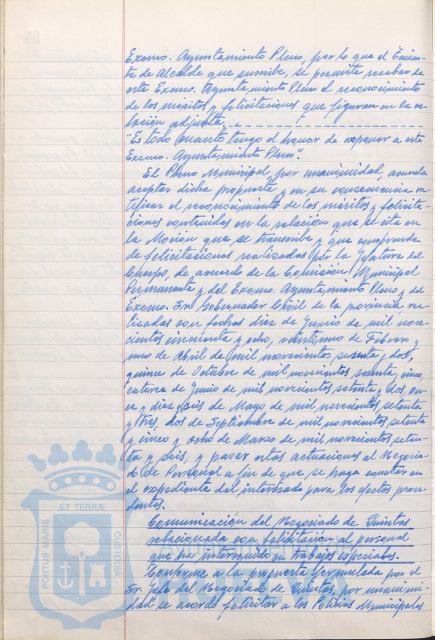 Excmo. Ayuntamiento Pleno, por lo que el Tenien-
te de Alcalde que suscribe, se permite recabar de
este Excmo. Ayuntamiento Pleno el reconocimiento
de los méritos y felicitaciones que figuran en la re-
lación adjunta.
"Es todo cuanto tengo el honor de exponer a este
Excmo. Ayuntamiento Pleno".
El Pleno Municipal, por unanimidad, acuerda
aceptar dicha propuesta y en su consecuencia ra-
tificar el reconocimiento de los méritos y felicita-
ciones contenidas en la relación que se cita en
la Moción que se transcribe y que comprende
de felicitaciones realizadas por la Jefatura del
Cuerpo, de acuerdo de la Comisión Municipal
Permanente y del Excmo. Ayuntamiento Pleno, y del
Excmo. Sr. Gobernador Civil de la provincia, rea-
lizadas con fechas diez de Junio de mil nove-
cientos cincuenta y ocho, veintiuno de Febrero y
uno de Abril de mil novecientos sesenta y dos,
quince de Octubre de mil novecientos sesenta y cinco,
catorce de Junio de mil novecientos setenta, dos
y diez y seis de Mayo de mil novecientos setenta
y tres, dos de Septiembre de mil novecientos setenta
y cinco y ocho de Marzo de mil novecientos seten-
ta y seis, y pasar estas actuaciones al Negocia-
do de Personal a fin de que se haga constar en
el expediente del interesado para los efectos proce-
dentes.
Comunicación del Negociado de Quintas
relacionada con felicitación al personal
que ha intervenido en trabajos especiales.
Conforme a la propuesta formulada por el
Sr. Jefe del Negociado de Quintas, por unanimi-
dad se acordó felicitar a los Policías Municipales
ET TERRAE
PORTUS MARIS
CUSTODIA